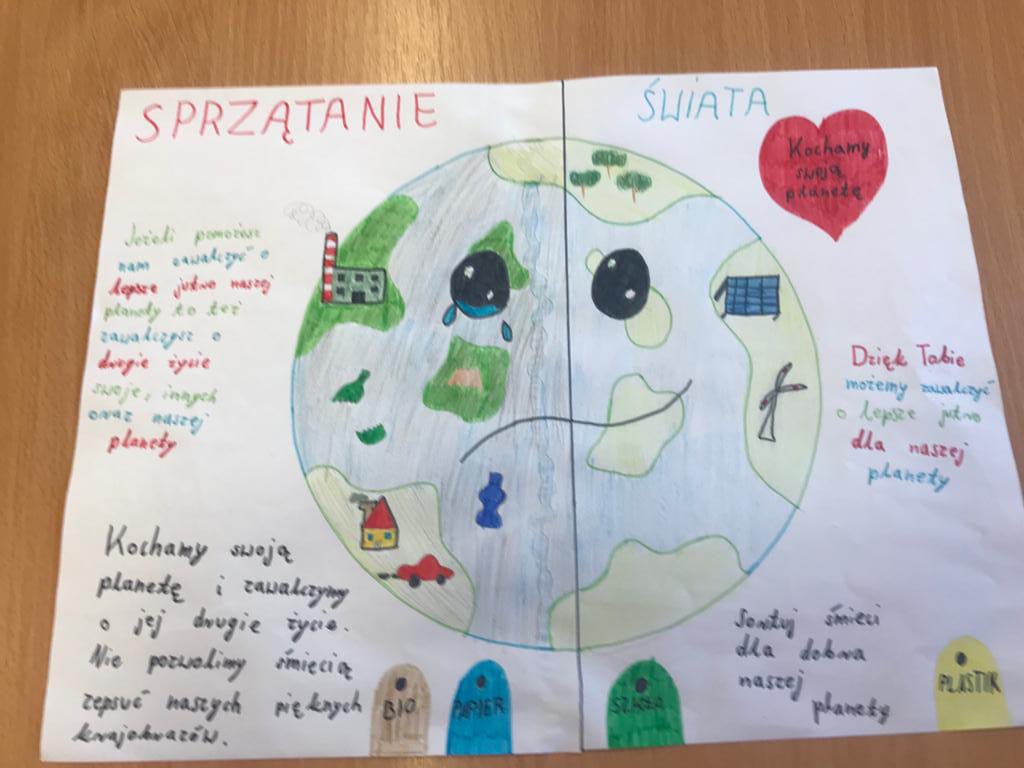 SPRZĄTANIE ŚWIATA
Kochamy
swoją
planetę
Jeżeli pomożesz
nam zawalczyć o
lepsze jutro naszej
planety to też
zawalczysz o
drugie życie
swoje, innych
oraz naszej
planety
Dzięk Tobie
możemy zawalczyć
o lepsze jutro
dla naszej
planety
Kochamy swoją
planetę i zawalczymy
o jej drugie życie.
Nie pozwolimy śmiecią
zepsuć naszych pięknych
krajobrazów.
Sortuj śmieci
dla dobra
naszej
planety
BIO
PAPIER
SZKŁO
PLASTIK